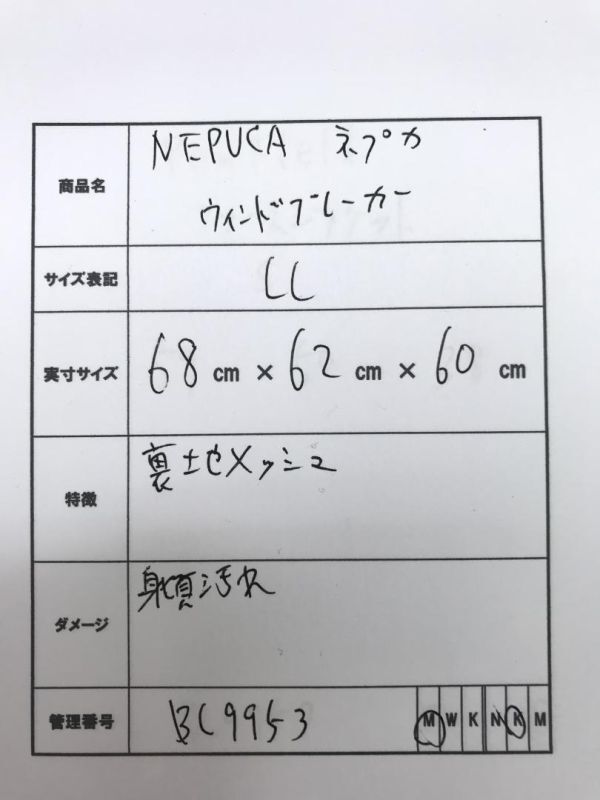 商品名
NEPUCA ネプカ
ウィンドブレーカー
サイズ表記
LL
実寸サイズ
68 cm × 62 cm × 60 cm
特徴
裏土也メッシュ
ダメージ
身頃汚れ
管理番号
BC9953
M W K N K M